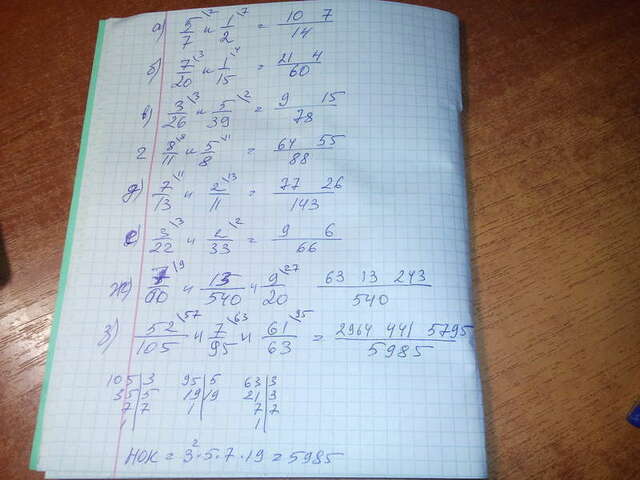 а) 5/7 \7 и 1/2 \7 = 10 7/14
б) 7/20 \3 и 1/15 \4 = 21 4/60
в) 3/26 \3 и 5/39 \2 = 9 15/78
г 8/11 \8 и 5/8 \11 = 64 55/88
д) 7/13 \11 и 2/11 \13 = 77 26/143
е) 3/22 \3 и 2/33 \2 = 9 6/66
ж) /60 \9 и 13/540 и 9/20 \27 63 13 243/540
з) 52/105 \57 и 7/95 \63 и 61/63 \95 = 2964 441 5795/5985
105|3 95|5 63|3
35|5 19|19 21|3
7|7 1| 7|7
1| 1|
НОК = 3²·5·7·19 = 5985